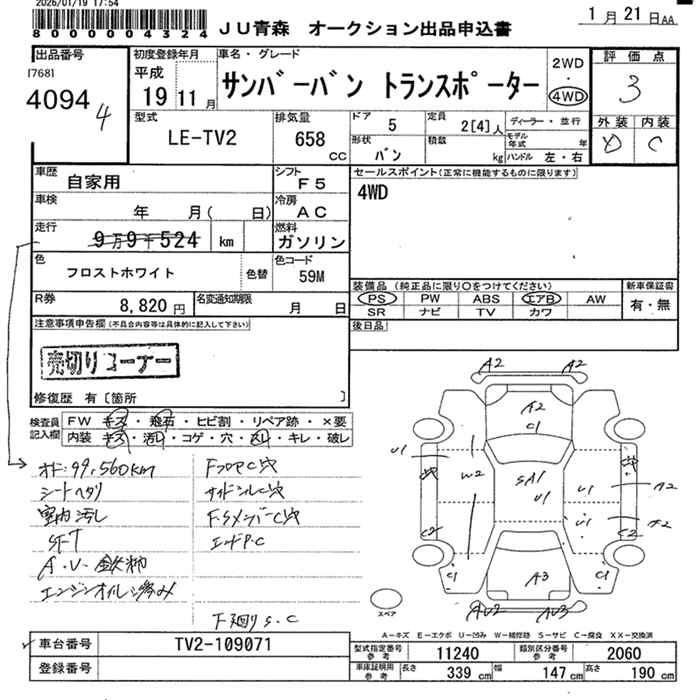 2026/01/19 17:54
8000004324
JU青森 オークション出品申込書
1月21日AA
出品番号
17681
4094
4
初度登録年月
平成
19 11月
車名・グレード
サンバーバン トランスポーター
2WD
・
4WD
評価点
3
外装 内装
D C
型式
LE-TV2
排気量
658
CC
ドア
5
定員
2[4]人
形状
バン
積載
kg
ディーラー・並行
モデル年式 年
ハンドル 左・右
車歴
自家用
シフト
F5
車検
年 月( 日)
冷房
AC
走行
9万9千524 km
燃料
ガソリン
色
フロストホワイト
色替
色コード
59M
R券
8,820円
名変通知期限
月 日
セールスポイント(正常に機能するものに限ります)
4WD
装備品 (純正品に限り〇をつけてください)
PS PW ABS エアB AW
SR ナビ TV カワ
新車保証書
有・無
後日品
注意事項申告欄(不具合内容等は具体的に記入して下さい)
売切りコーナー
修復歴 有〔箇所 〕
検査員記入欄
FW キズ・飛石・ヒビ割・リペア跡・×要
内装 キズ・汚れ・コゲ・穴・こり・キレ・破レ
オド:99,560km
シートヘタリ
室内汚し
SFT
A.U.鉄粉
エンジンオイル滲み
FフロアC穴
サイドシルC穴
FSメンバーC穴
エンドP.C
F廻りS.C
A2
A2
A2
C1
U1
W2
SA1
U1
U1
U1
A2
A2
C2
C2
C1
C1
A3
AU2
AU3
スペア
A-キズ E-エクボ U-凹み W-補修跡 S-サビ C-腐食 XX-交換済
車台番号
TV2-109071
登録番号
型式指定番号
参考
11240
類別区分番号
参考
2060
車庫証明用
参考
長さ
339 cm
幅
147 cm
高さ
190 cm